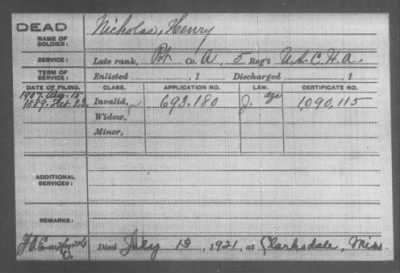 DEAD
NAME OF SOLDIER: Nicholas, Henry
SERVICE: Late rank, Pvt Co. A, 5 Reg't U.S.C.H.A.
TERM OF SERVICE: Enlisted , 1 Discharged , 1
DATE OF FILING. CLASS. APPLICATION NO. LAW. CERTIFICATE NO.
1907. Aug. 15
1889. Invalid, 693,180 1,090,115
Widow,
Minor,
ADDITIONAL SERVICES:
REMARKS:
Died July 13, 1921, at Clarksdale, Miss.